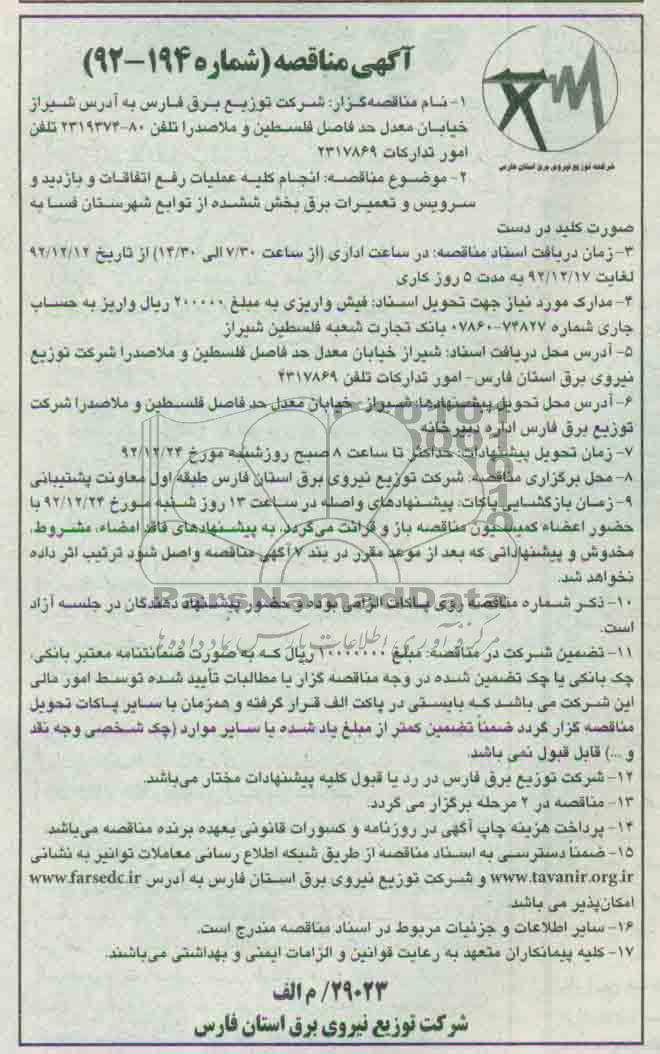 آگهی مناقصه (شماره ۱۹۴-۹۲)
شرکت توزیع نیروی برق استان فارس
۱- نام مناقصه‌گزار: شرکت توزیع برق فارس به آدرس شیراز
خیابان معدل حد فاصل فلسطین و ملاصدرا تلفن ۸۰-۲۳۱۹۳۷۴ تلفن
امور تدارکات ۲۳۱۷۸۶۹
۲- موضوع مناقصه: انجام کلیه عملیات رفع اتفاقات و بازدید و
سرویس و تعمیرات برق بخش ششده از توابع شهرستان فسا به
صورت کلید در دست
۳- زمان دریافت اسناد مناقصه: در ساعت اداری (از ساعت ۷/۳۰ الی ۱۴/۳۰) از تاریخ ۹۲/۱۲/۱۲
لغایت ۹۲/۱۲/۱۷ به مدت ۵ روز کاری
۴- مدارک مورد نیاز جهت تحویل اسناد: فیش واریزی به مبلغ ۲۰۰۰۰۰ ریال واریز به حساب
جاری شماره ۷۴۸۲۷-۰۷۸۶۰ بانک تجارت شعبه فلسطین شیراز
۵- آدرس محل دریافت اسناد: شیراز خیابان معدل حد فاصل فلسطین و ملاصدرا شرکت توزیع
نیروی برق استان فارس- امور تدارکات تلفن ۲۳۱۷۸۶۹
۶- آدرس محل تحویل پیشنهادها: شیراز - خیابان معدل حد فاصل فلسطین و ملاصدرا شرکت
توزیع برق فارس اداره دبیرخانه
۷- زمان تحویل پیشنهادات: حداکثر تا ساعت ۸ صبح روزشنبه مورخ ۹۲/۱۲/۲۴
۸- محل برگزاری مناقصه: شرکت توزیع نیروی برق استان فارس طبقه اول معاونت پشتیبانی
۹- زمان بازگشایی پاکات: پیشنهادهای واصله در ساعت ۱۳ روز شنبه مورخ ۹۲/۱۲/۲۴ با
حضور اعضاء کمیسیون مناقصه باز و قرائت می‌گردد، به پیشنهادهای فاقد امضاء، مشروط،
مخدوش و پیشنهاداتی که بعد از موعد مقرر در بند ۷ آگهی مناقصه واصل شود ترتیب اثر داده
نخواهد شد.
ParsNamadData
۱۰- ذکر شماره مناقصه روی پاکات الزامی بوده و حضور پیشنهاد دهندگان در جلسه آزاد
است.
مرکز فرآوری اطلاعات پارس نماد داده ها
۱۱- تضمین شرکت در مناقصه: مبلغ ۱۰۰۰۰۰۰۰ ریال که به صورت ضمانتنامه معتبر بانکی،
چک بانکی یا چک تضمین شده در وجه مناقصه گزار یا مطالبات تأیید شده توسط امور مالی
این شرکت می باشد که بایستی در پاکت الف قرار گرفته و همزمان با سایر پاکات تحویل
مناقصه گزار گردد ضمناً تضمین کمتر از مبلغ یاد شده یا سایر موارد (چک شخصی وجه نقد
و ...) قابل قبول نمی باشد.
۱۲- شرکت توزیع برق فارس در رد یا قبول کلیه پیشنهادات مختار می‌باشد.
۱۳- مناقصه در ۲ مرحله برگزار می گردد.
۱۴- پرداخت هزینه چاپ آگهی در روزنامه و کسورات قانونی بعهده برنده مناقصه می‌باشد.
۱۵- ضمناً دسترسی به اسناد مناقصه از طریق شبکه اطلاع رسانی معاملات توانیر به نشانی
www.tavanir.org.ir و شرکت توزیع نیروی برق استان فارس به آدرس www.farsedc.ir
امکان‌پذیر می باشد.
۱۶- سایر اطلاعات و جزئیات مربوط در اسناد مناقصه مندرج است.
۱۷- کلیه پیمانکاران متعهد به رعایت قوانین و الزامات ایمنی و بهداشتی می‌باشند.
۲۹۰۲۳/ م الف
شرکت توزیع نیروی برق استان فارس